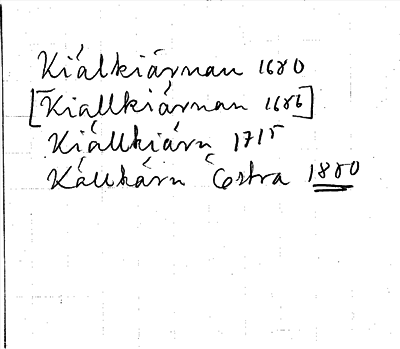 Kiälkiärnan 1680
[Kiällkiärnan 1686]
Kiällkiärn 1715
Källkärn Östra 1880